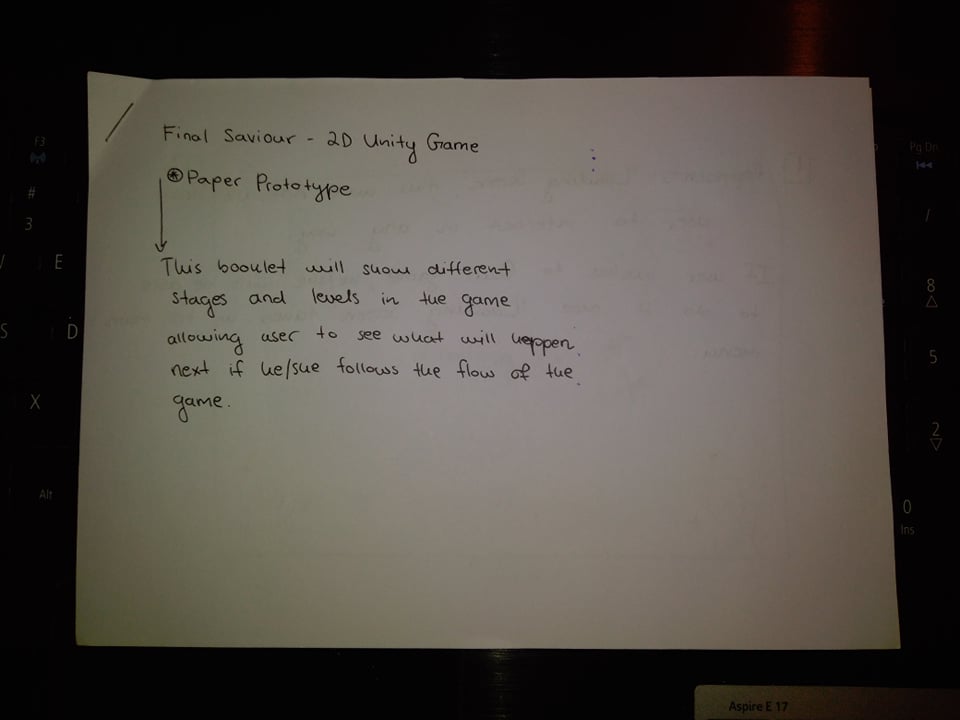 Final Saviour - 2D Unity Game
⊛ Paper Prototype
This booklet will show different
stages and levels in the game
allowing user to see what will heppen
next if he/she follows the flow of the
game.
F3
#
3
E
S
D
X
Alt
Pg Dn
/
8
5
2
0
Ins
Aspire E 17